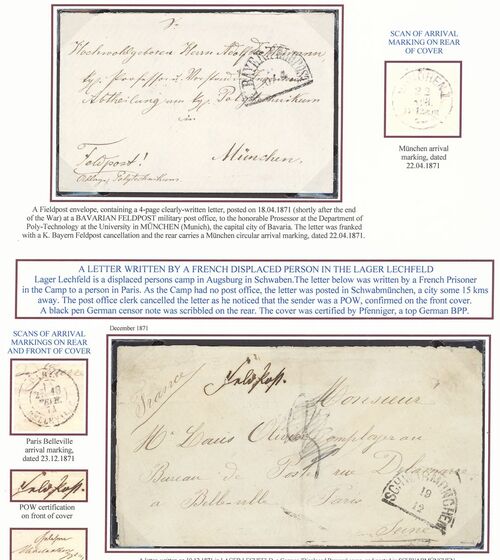 SCAN OF ARRIVAL
MARKING ON REAR
OF COVER
Hochwohlgeboren Herrn
Abtheilung am kg. Polytechnikum
in
Feldpost!
München.
München arrival
marking, dated
22.04.1871
A Fieldpost envelope, containing a 4-page clearly-written letter, posted on 18.04.1871 (shortly after the end
of the War) at a BAVARIAN FELDPOST military post office, to the honorable Prosessor at the Department of
Poly-Technology at the University in MÜNCHEN (Munich), the capital city of Bavaria. The letter was franked
with a K. Bayern Feldpost cancellation and the rear carries a München circular arrival marking, dated 22.04.1871.
A LETTER WRITTEN BY A FRENCH DISPLACED PERSON IN THE LAGER LECHFELD
Lager Lechfeld is a displaced persons camp in Augsburg in Schwaben.The letter below was written by a French Prisoner
in the Camp to a person in Paris. As the Camp had no post office, the letter was posted in Schwabmünchen, a city some 15 kms
away. The post office clerk cancelled the letter as he noticed that the sender was a POW, confirmed on the front cover.
A black pen German censor note was scribbled on the rear. The cover was certified by Pfenniger, a top German BPP.
SCANS OF ARRIVAL
MARKINGS ON REAR
AND FRONT OF COVER
December 1871
France
Feldpost.
Monsieur
Mr Louis Olivier employer au
Bureau de Poste rue
a Belleville Paris
Seine
SCHWABMÜNCHEN
19
12
Paris Belleville
arrival marking,
dated 23.12.1871
Feldpost.
POW certification
on front of cover